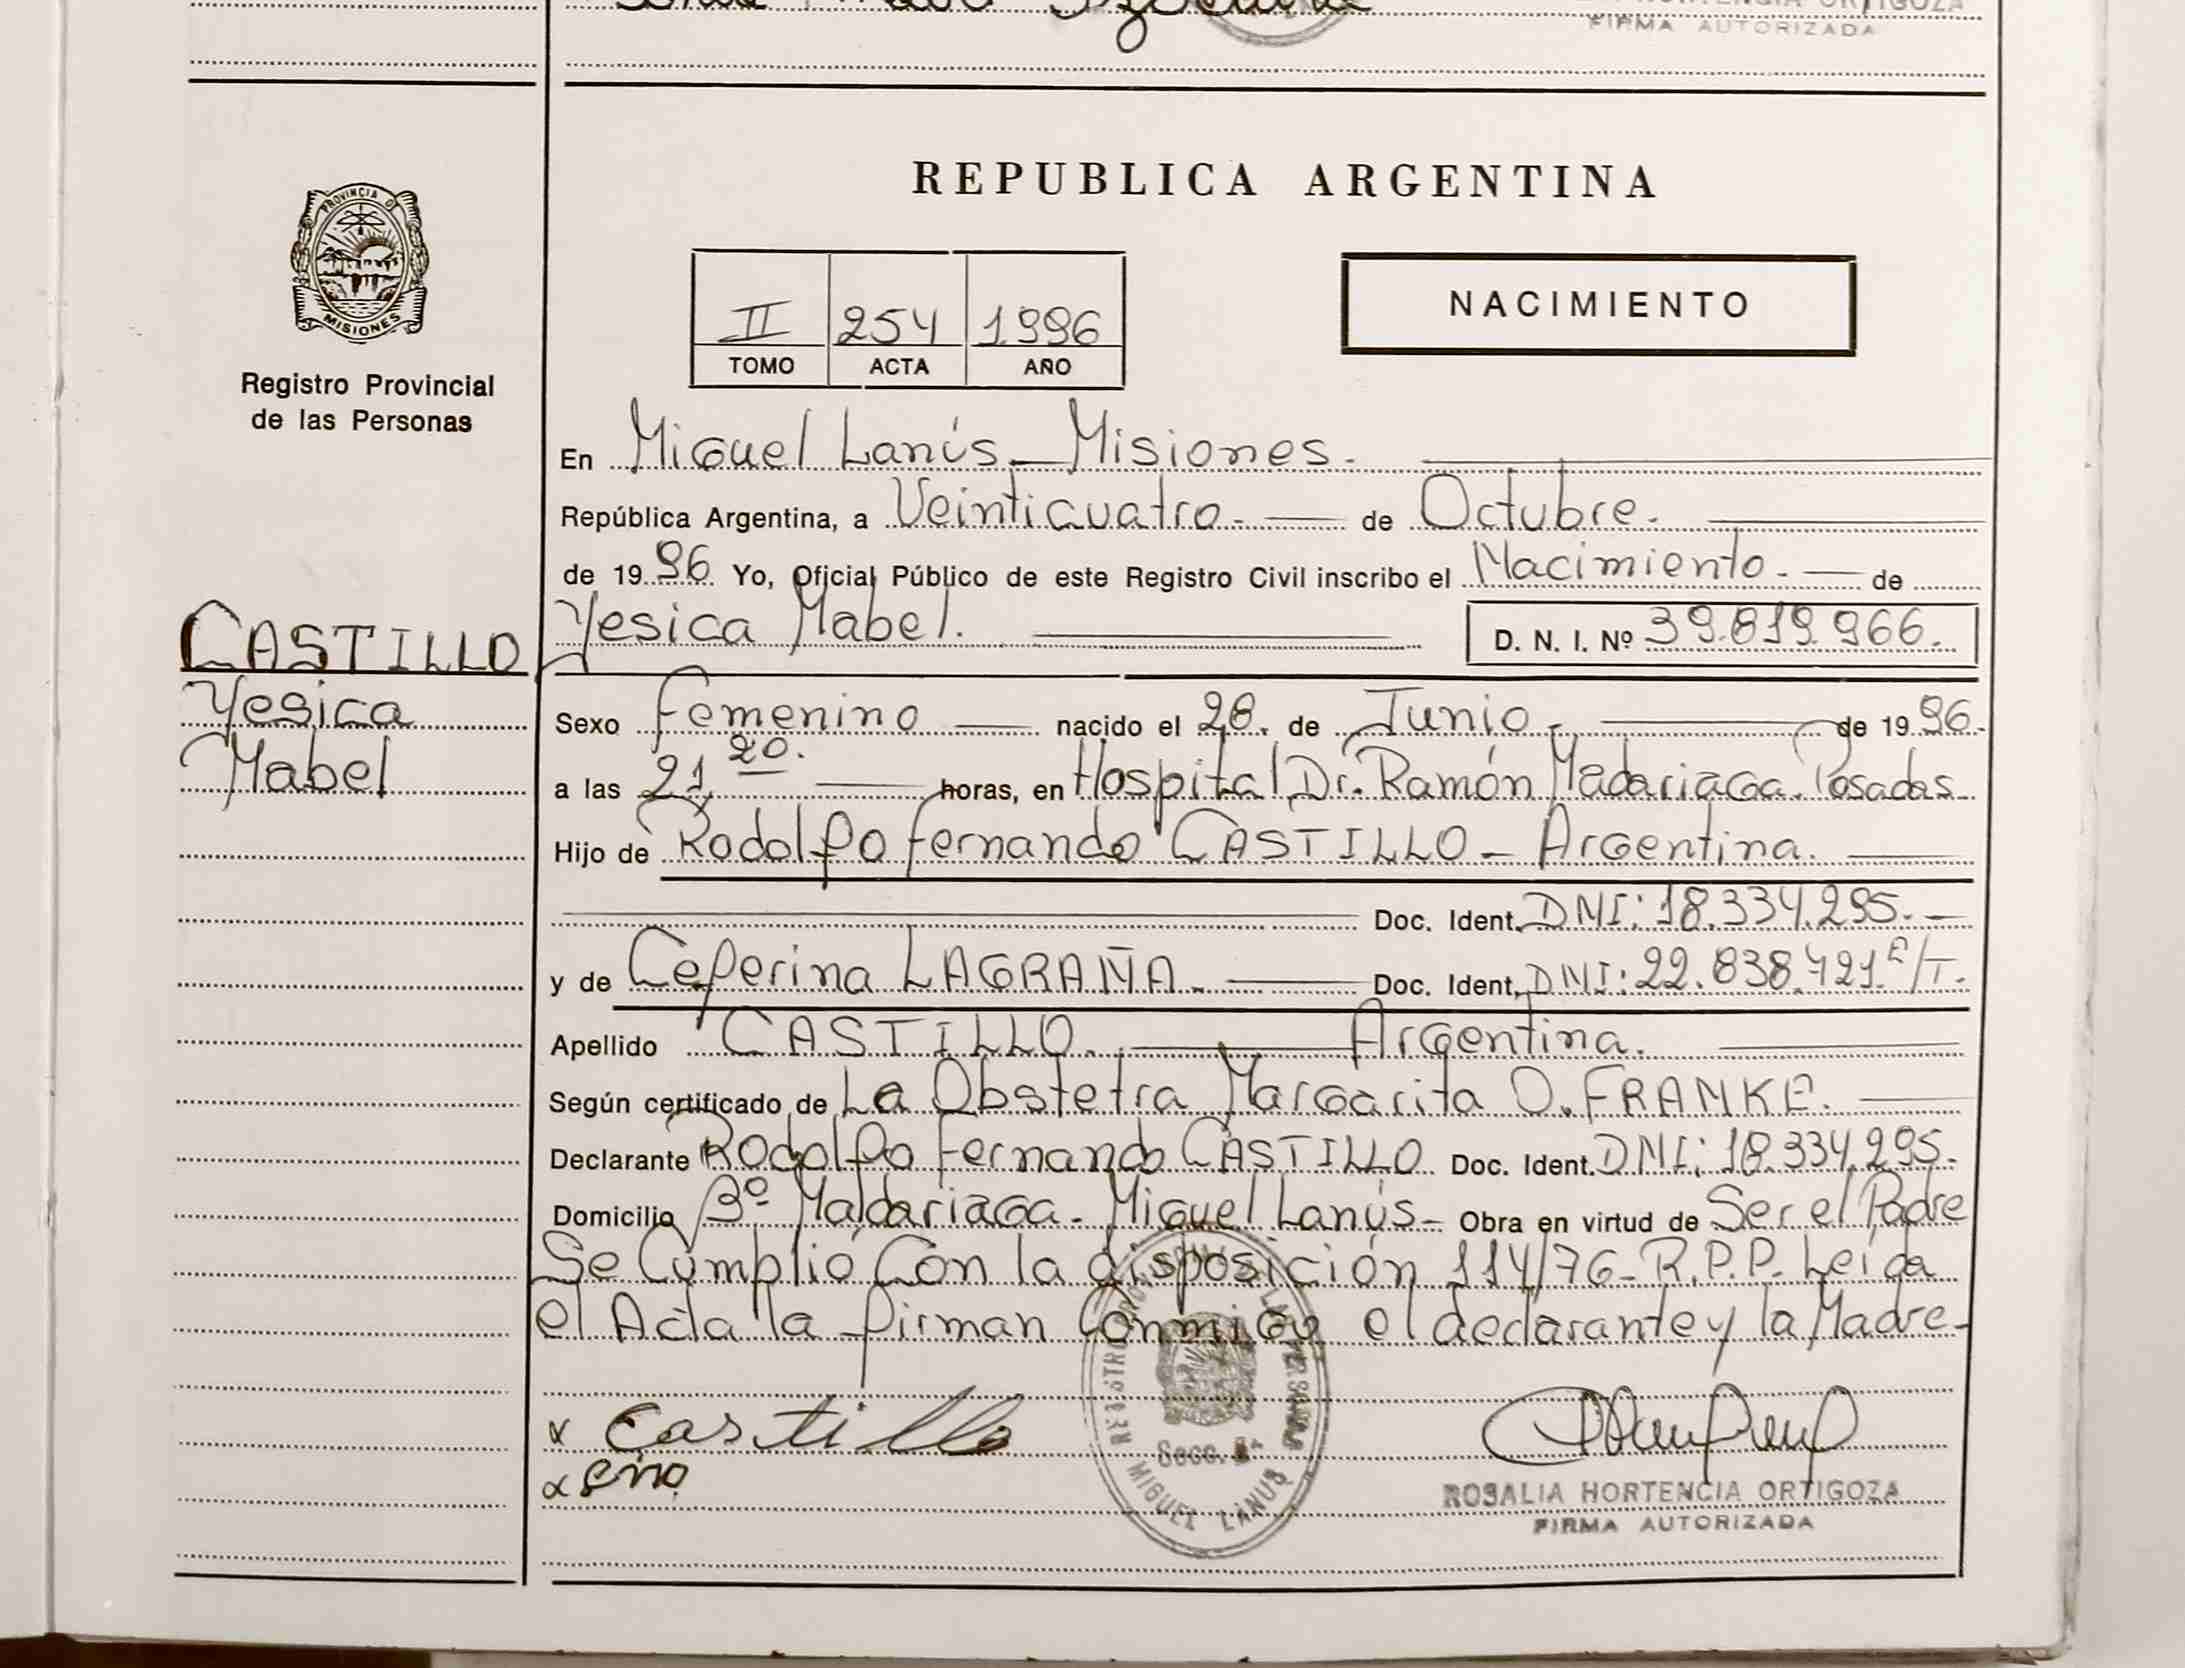 FIRMA AUTORIZADA
REPUBLICA ARGENTINA
PROVINCIA D
MISIONES
Registro Provincial
de las Personas
II 254 1996
TOMO ACTA AÑO
NACIMIENTO
En Miguel Lanús - Misiones.
República Argentina, a Veinticuatro. de Octubre.
de 1996 Yo, Oficial Público de este Registro Civil inscribo el Nacimiento. de
Yesica Mabel. D. N. I. Nº 39.819.966.
CASTILLO
Yesica
Mabel
Sexo Femenino nacido el 28. de Junio. de 1996.
a las 21 20. horas, en Hospital Dr. Ramón Madariaga. Posadas.
Hijo de Rodolfo Fernando CASTILLO - Argentina.
Doc. Ident. DNI: 18.334.295.
y de Ceferina LAGRAÑA. Doc. Ident. DNI: 22.838.421 E/T.
Apellido CASTILLO. Argentina.
Según certificado de La Obstetra Margarita O. FRANKE.
Declarante Rodolfo Fernando CASTILLO Doc. Ident. DNI: 18.334.295.
Domicilio Bº Maldariaga. Miguel Lanús - Obra en virtud de Ser el Padre
Se Cumplió Con la disposición 114/76 - R.P.P. Leída
el Acta la firman Conmigo el declarante y la Madre -
x Castillo
x
Secc.
MIGUEL LANUS
ROSALIA HORTENCIA ORTIGOZA
FIRMA AUTORIZADA